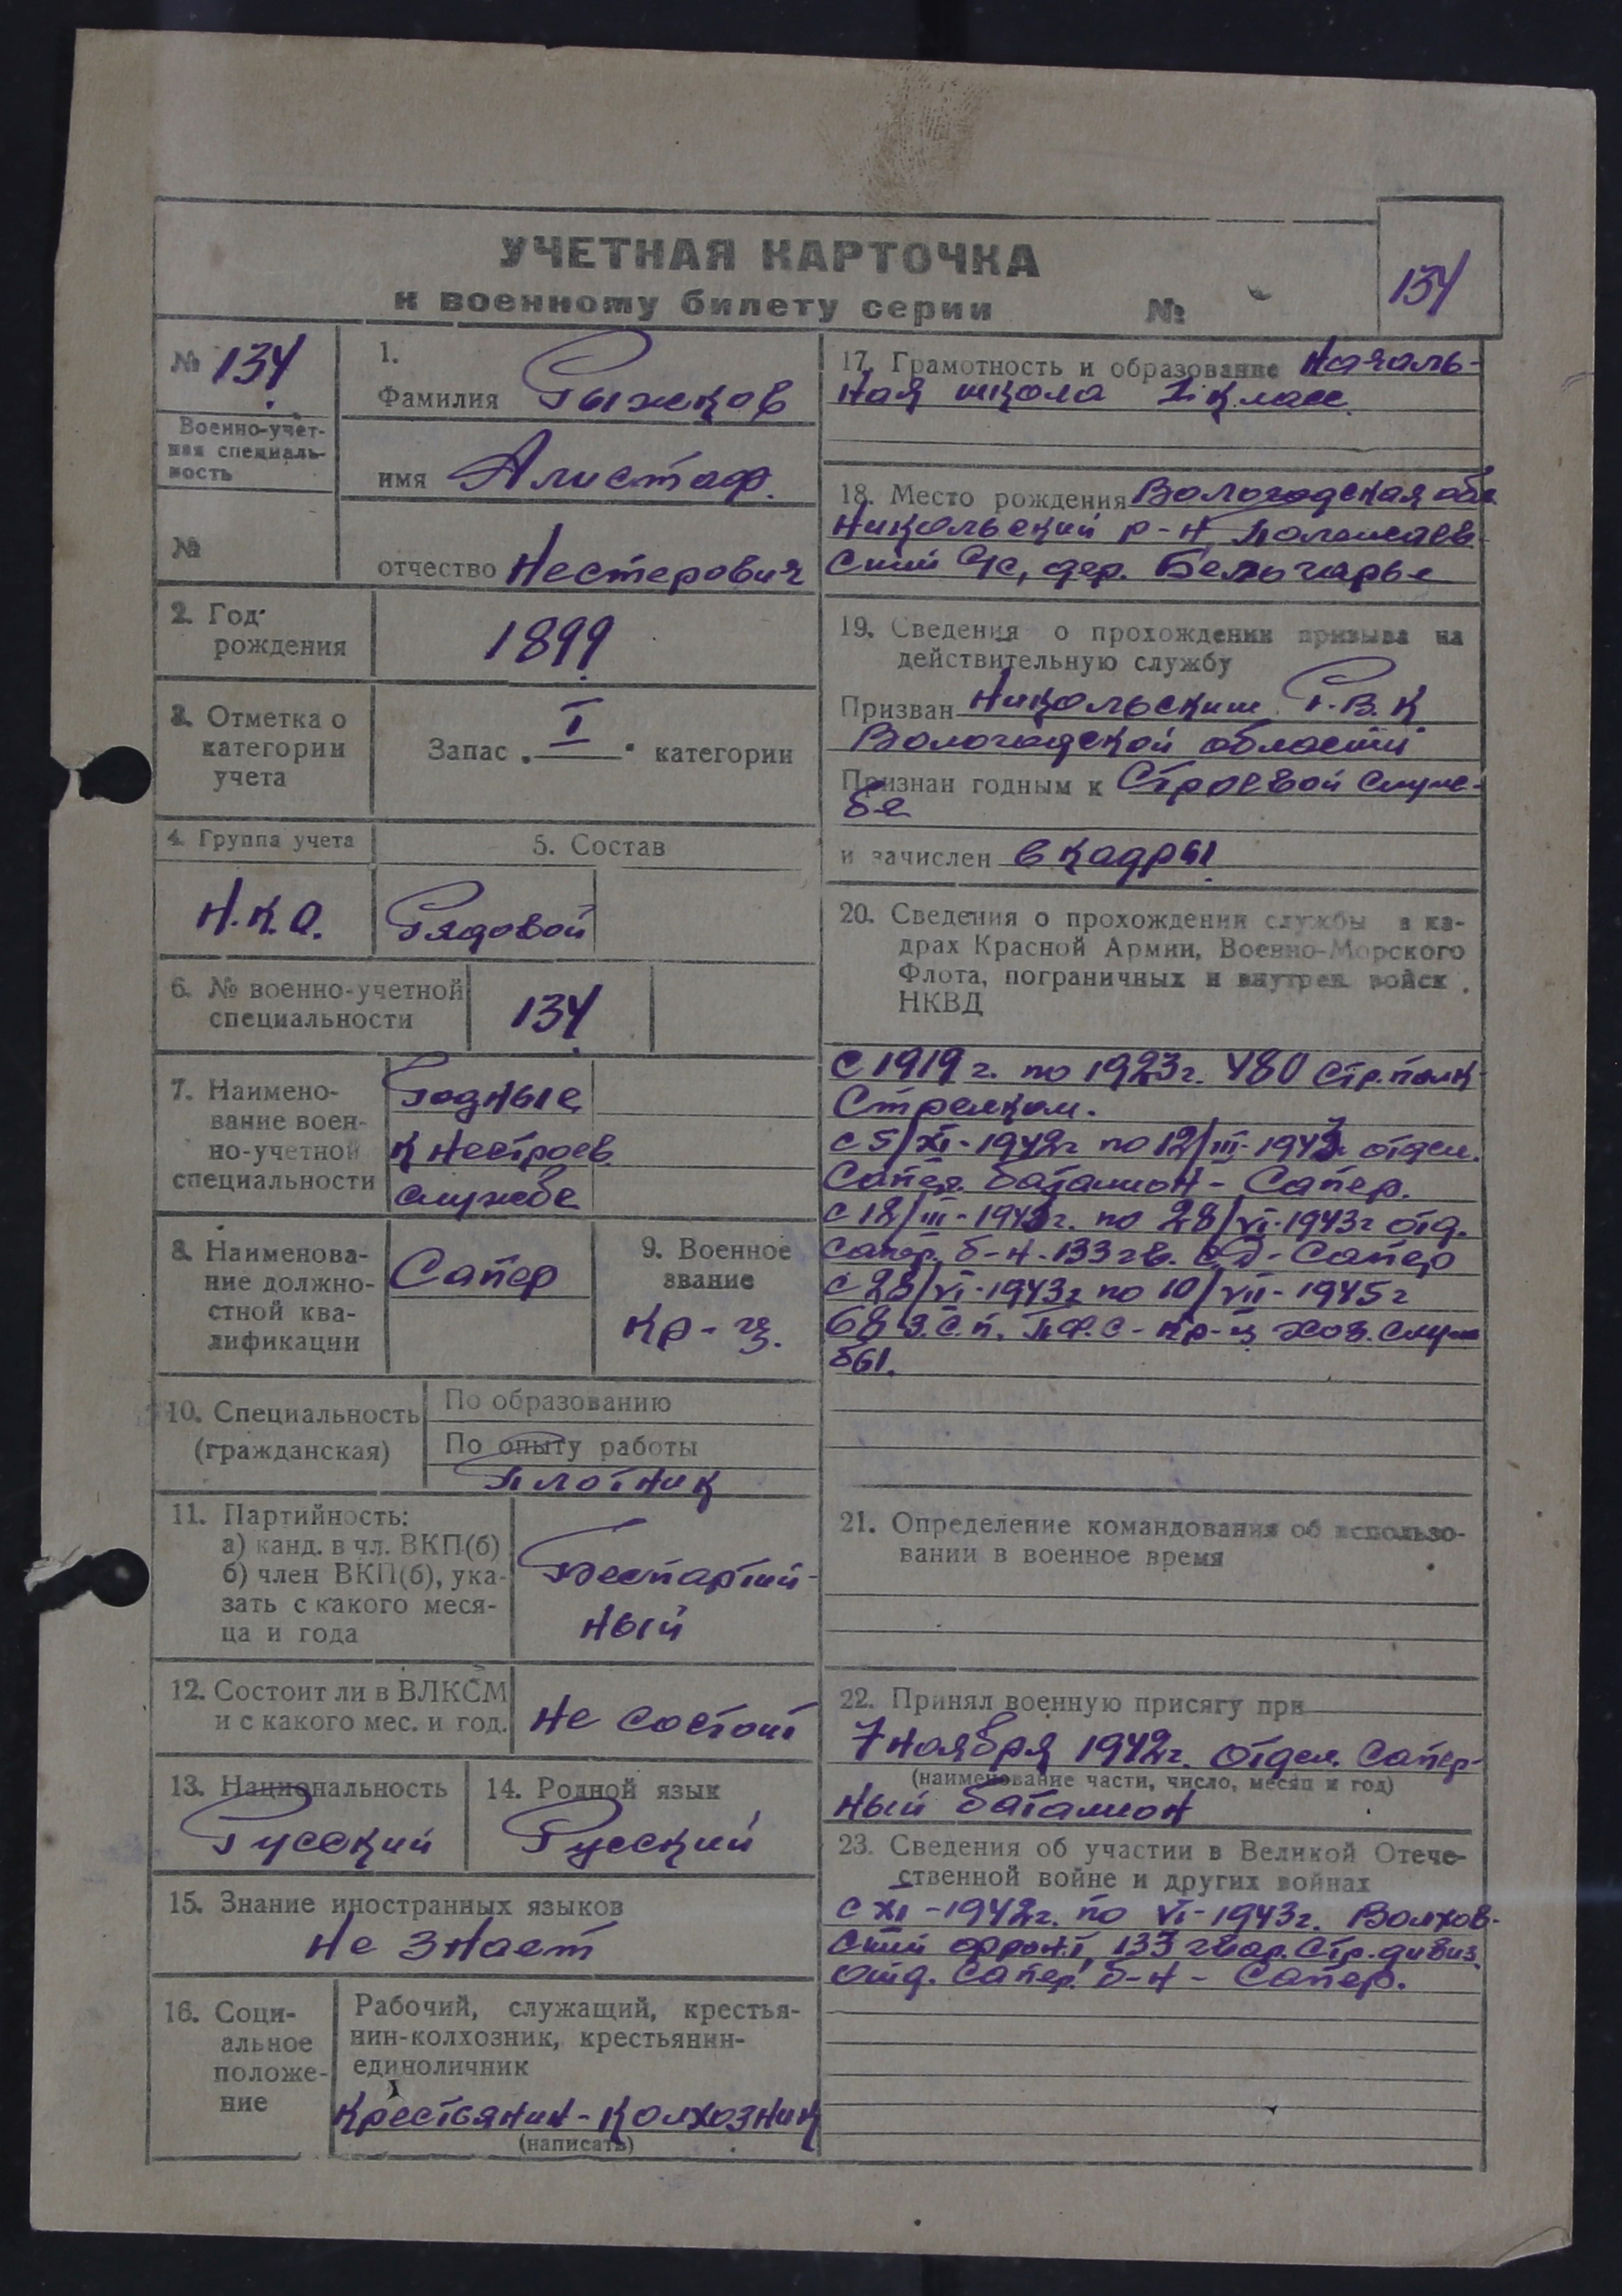 УЧЕТНАЯ КАРТОЧКА
к военному билету серии №
134
№ 134
Военно-учет-
ная специаль-
ность
№
1.
Фамилия Рыжков
имя Алистаф.
отчество Нестерович
2. Год
рождения
1899
3. Отметка о
категории
учета
Запас „I“ категории
4. Группа учета
5. Состав
Н.К.О.
Рядовой
6. № военно-учетной
специальности
134
7. Наимено-
вание воен-
но-учетной
специальности
Годные
к нестроев.
службе
8. Наименова-
ние должно-
стной ква-
лификации
Сапер
9. Военное
звание
Кр-ц.
10. Специальность
(гражданская)
По образованию
По опыту работы
Плотник
11. Партийность:
а) канд. в чл. ВКП(б)
б) член ВКП(б), ука-
зать с какого меся-
ца и года
Беспартий-
ный
12. Состоит ли в ВЛКСМ
и с какого мес. и год.
не состоит
13. Национальность
Русский
14. Родной язык
Русский
15. Знание иностранных языков
не знает
16. Соци-
альное
положе-
ние
Рабочий, служащий, крестья-
нин-колхозник, крестьянин-
единоличник
Крестьянин-колхозник
(написать)
17. Грамотность и образование Началь-
ная школа класс.
18. Место рождения Вологодская обл
Никольский р-н
ский с/с, дер.
19. Сведения о прохождении призыва на
действительную службу
Призван Никольским Р.В.К
Вологодской области
Признан годным к Строевой служ-
бе
и зачислен в кадры.
20. Сведения о прохождении службы в ка-
драх Красной Армии, Военно-Морского
Флота, пограничных и внутрен. войск
НКВД
с 1919 г. по 1923 г. 480 стр. полк
Стрелком.
с 5/XI-1942 г по 12/III-1943 г. отдел.
Сапер. батальон - Сапер.
с 12/III-1943 г. по 28/VI-1943 г отд.
сапер. б-н. 133 гв. с.д - Сапер
с 28/VI-1943 г по 10/VII-1945 г
68 з.с.п. П.Ф.С - кр-ц хоз. служ
бы.
21. Определение командования об использо-
вании в военное время
22. Принял военную присягу при
7 ноября 1942 г. отдел. Сапер-
(наименование части, число, месяц и год)
ный батальон
23. Сведения об участии в Великой Отече-
ственной войне и других войнах
с XI-1942 г. по VI-1943 г. Волхов-
ский фронт, 133 гвар. Стр. дивиз.
отд. сапер. б-н - Сапер.